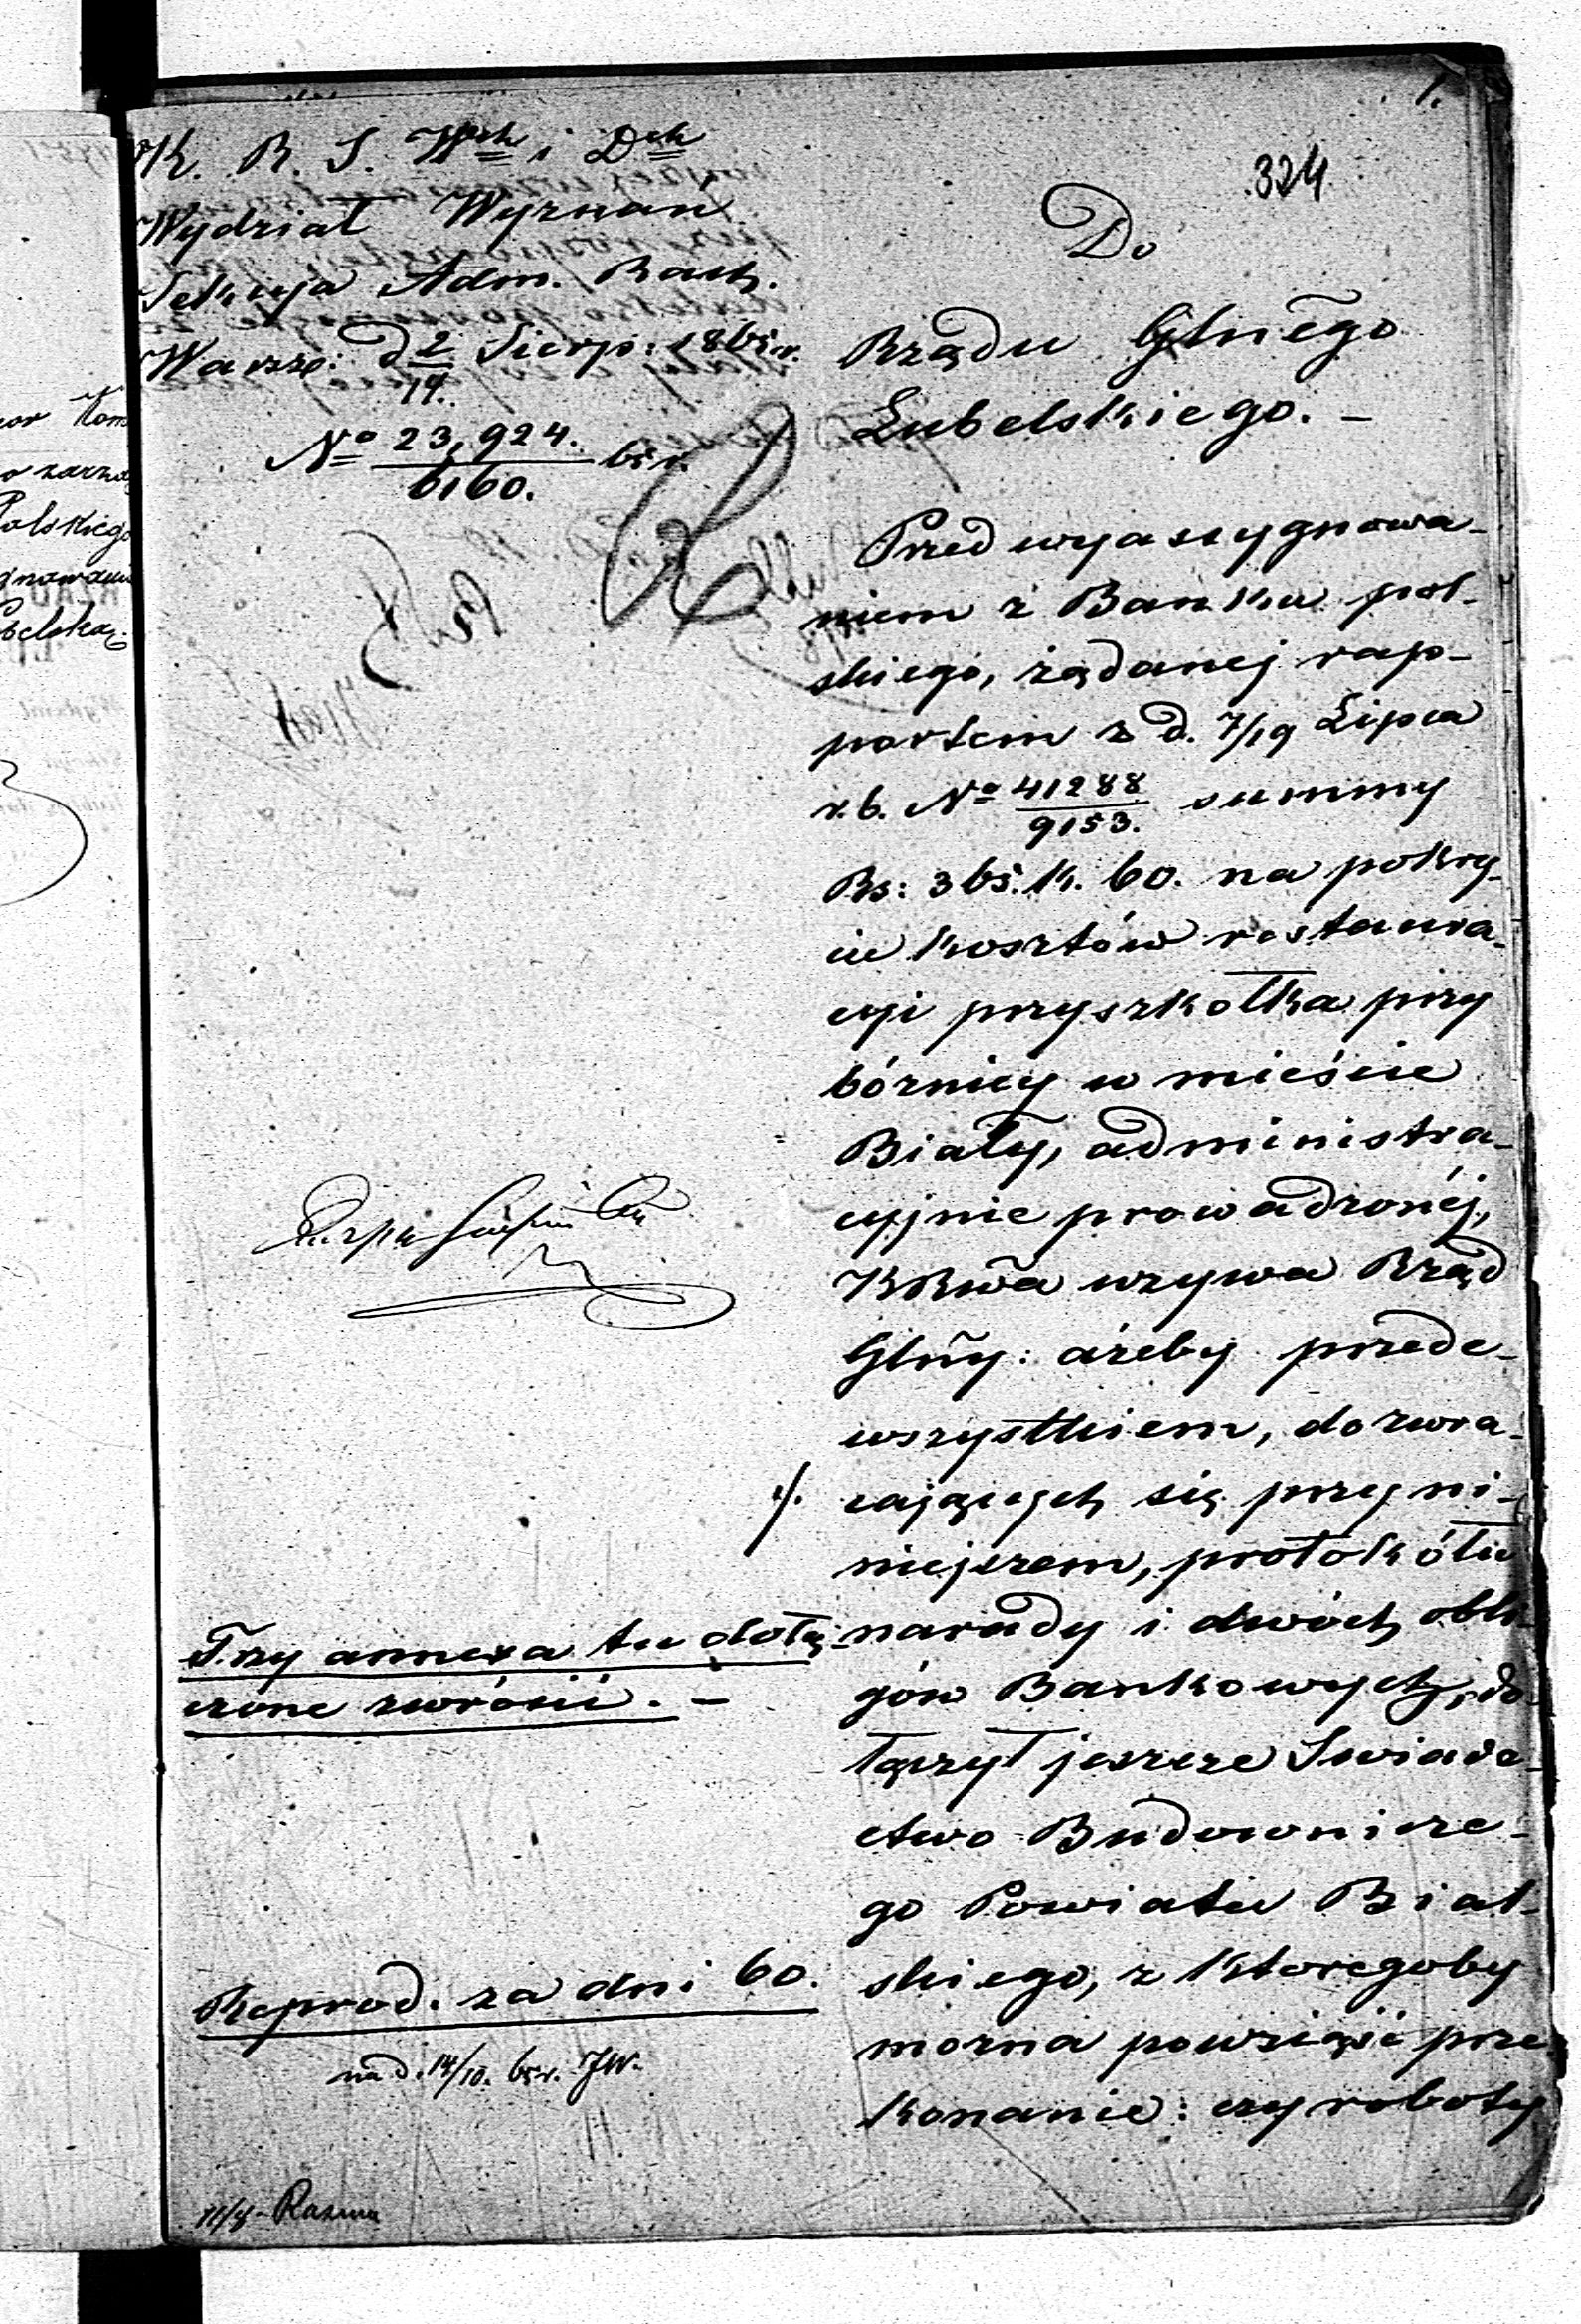 1.
324
K. R. S. Wych i Dch
Wydział Wyznań
Sekcyja Adm. Rach.
Warsz: d 2/14. Sierp: 1865 r.
No 23,924./6160. 65 r.
Do
Rządu Glnego
Lubelskiego. –
Przed wyassygnowa-
niem z Banku pol-
skiego, żądanej rap-
portem z d. 7/19 Lipca
r.b. No 41288/9153. summy
Rs: 365. k. 60. na pokry-
cie kosztów restaura-
cyi przyszkołka przy
bóżnicy w mieście
Biały, administra-
cyjnie prowadzonéj,
KRwa wzywa Rząd
Glny: ażeby przede-
wszystkiem, do zwra-
./. cających się przy ni-
niejszem, protokółu
narady i dwóch obli-
gów Bankowych, do-
łączył jeszcze Swiade-
ctwo Budownicze-
go Powiatu Bial-
skiego, z któregoby
można powziąść prze-
konanie: czy roboty
Trzy annexa tu dołą-
czone zwrócić. –
Reprod. za dni 60.
na d. 14/10. 65 r. JW.
11/8
or Kom
o zarzą
Polskiego
gnowani
belska